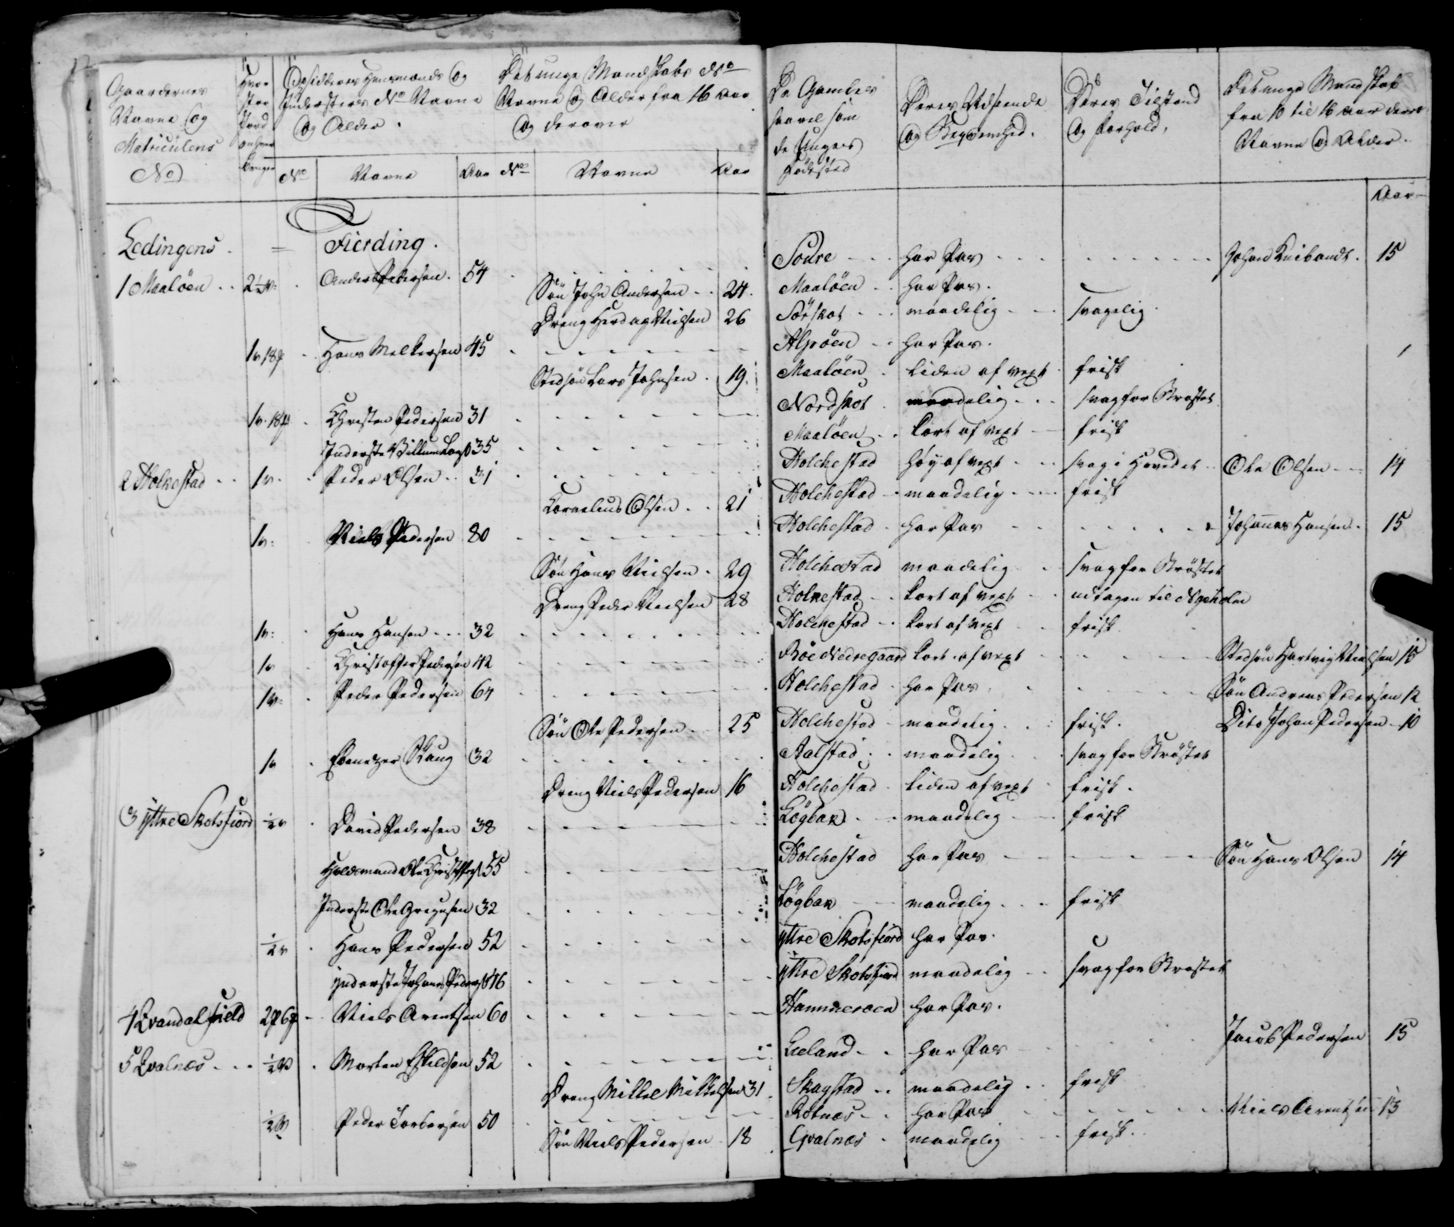 Gaardernes Navne og Matriculens No
Hvor stor Jord enhver bruger
Opsidderes Huusmænds og Indersters No Navne og Alder.
Det unge Mandskabs No Navne og Alder fra 16 Aar og derover
De Gamles saavelsom de Unges Fødested
Deres Udseende og Beqvemhed.
Deres Tilstand og Forhold,
Det unge Mandskab fra 10 til 16 Aar deres Navne og Alder.
No Navne Aar No Navne Aar Aar
Lødingens = Fierding.
1 Maaløen 2½ Anders Pedersen. 54 Sødre har Pas Johan 15
Søn John Andersen 24. Maaløen har Pas.
Dreng Nielsen 26 Sørskot maadelig svagelig
1 18 Hans Melkersen 45 har Pas.
Stedsøn Lars Johnsen 19. Maaløen liden af vext frisk
1 18 Christen Pedersen 31 Nordskot maadelig svag for Brøstet
Inderste 35 Maaløen kort af vext frisk
2 Holkestad 1 Peder Olsen 31 Holchestad høy af vext svag i Hovedet Ole Olsen 14
Cornelius Olsen 21 Holchestad maadelig frisk
1 Niels Pedersen 80 Holchestad har Pas Johannes Hansen 15
Søn Hans Nielsen 29 Holchestad maadelig svag for Brøstet
Dreng Peder Nielsen 28 Holkestad kort af vext udtagen til
1 Hans Hansen 32 Holchestad kort af vext frisk
1 Christoffer Pedersen 42 Böe Nedregaard kort af vext Stedsøn Hartvig Nielsen 15
1 Peder Pedersen 64 Holchestad har Pas Søn Andreas Pedersen 12
Søn Ole Pedersen 25 Holchestad maadelig frisk. Dito Johan Pedersen 10
1 Ebenezer 32 Aalstad maadelig svag for Brøstet
Dreng Niels Pedersen 16 Holchestad liden af vext frisk.
3 Yttre Skotsfiord ½ David Pedersen 38 Løgbak maadelig frisk
Huusmand Ole 55 Holchestad har Pas Søn Hans Olsen 14
Inderst Ole Gregusen 32 Løgbak maadelig frisk
½ Hans Pedersen 52 Yttre Skotsfiord har Pas.
Inderste Johan 46 Yttre Skotsfiord maadelig svag for Brøstet
4 Qvandalfield Niels Arentsen 60 Hammerøen har Pas.
5 Qvalnæs ½ Morten Eskildsen 52 Leland har Pas Jacob Pedersen 15
Dreng Mikkel Mikkelsen 31 Skagstad maadelig frisk
½ Peder Torbersen 50 Rotnæs har Pas Niels Arentsen 13
Søn Niels Pedersen 18 Qvalnæs maadelig frisk.